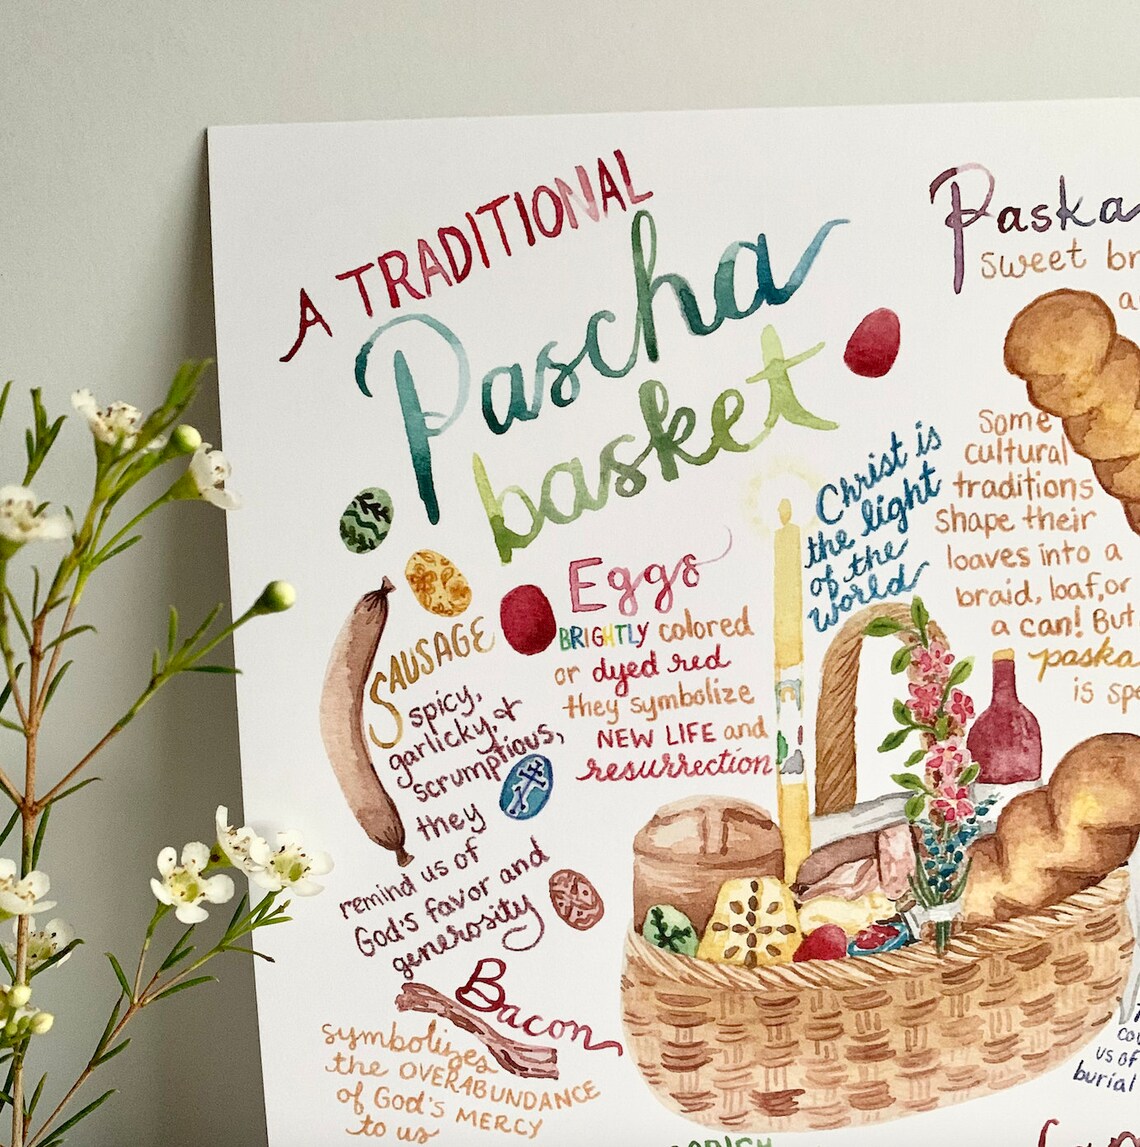 A TRADITIONAL
Pascha
basket
Paska
sweet
Christ is
the light
of the
world
Some
cultural
traditions
shape their
loaves into a
braid, loaf, or
a can! But
paska
is
Eggs
BRIGHTLY colored
or dyed red
they symbolize
NEW LIFE and
resurrection
SAUSAGE
spicy,
garlicky, &
scrumptious,
they
remind us of
God's favor and
generosity
Bacon
symbolizes
the OVERABUNDANCE
of God's MERCY
to us
us of
burial